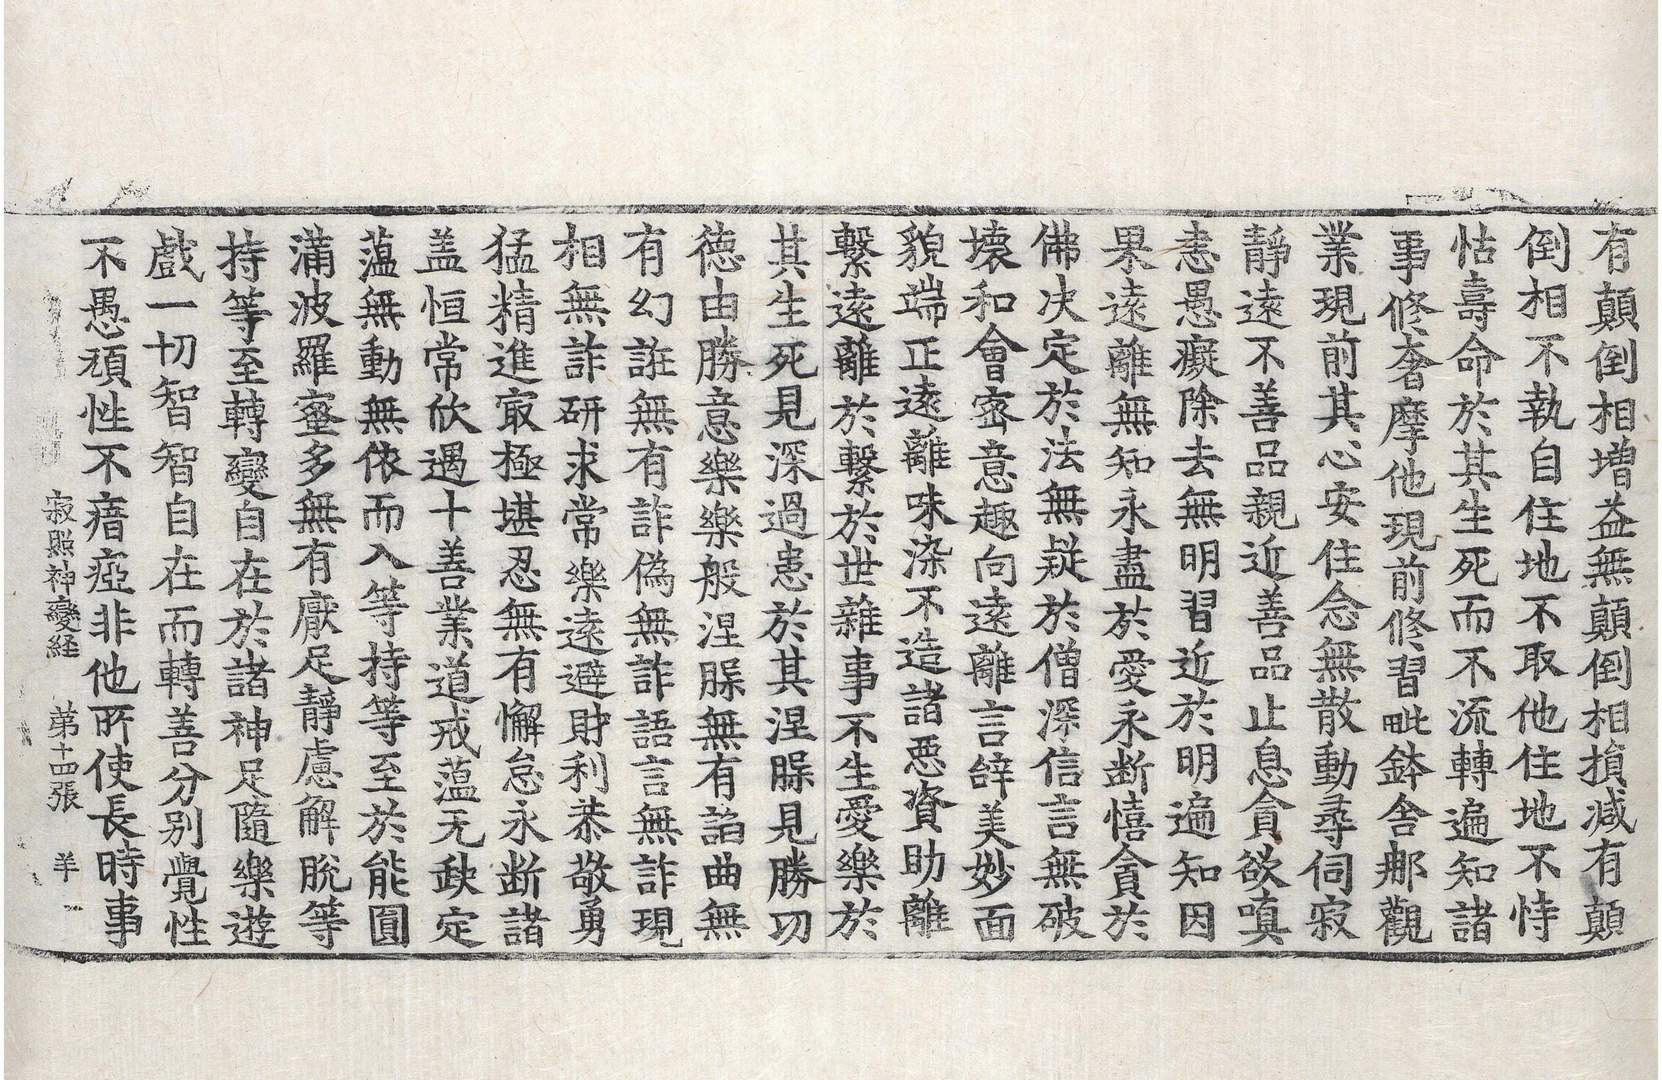 有顛倒相增益無顛倒相損减有顛
倒相不執自住地不取他住地不恃
怙壽命於其生死而不流轉遍知諸
事修奢摩他現前修習毗鉢舍那觀
業現前其心安住念無散動尋伺寂
靜遠不善品親近善品止息貪欲嗔
恚愚癡除去無明習近於明遍知因
果遠離無知永盡於愛永斷慳貪於
佛决定於法無疑於僧深信言無破
壞和會密意趣向遠離言辝美妙面
貌端正遠離味染不造諸惡資助離
繫遠離於繫於世雜事不生愛樂於
其生死見深過患於其涅槃見勝功
德由勝意樂樂般涅槃無有諂曲無
有幻誑無有詐偽無詐語言無詐現
相無詐研求常樂遠避財利恭敬勇
猛精進㝡極堪忍無有懈怠永断諸
盖恒常欣遇十善業道戒蕴无缺定
蕴無動無依而入等持等至於能圓
滿波羅蜜多無有厭足靜慮解脫等
持等至轉變自在於諸神足隨樂遊
戲一切智智自在而轉善分別覺性
不愚頑性不瘖瘂非他所使長時事
寂照神變経 第十四張 羊